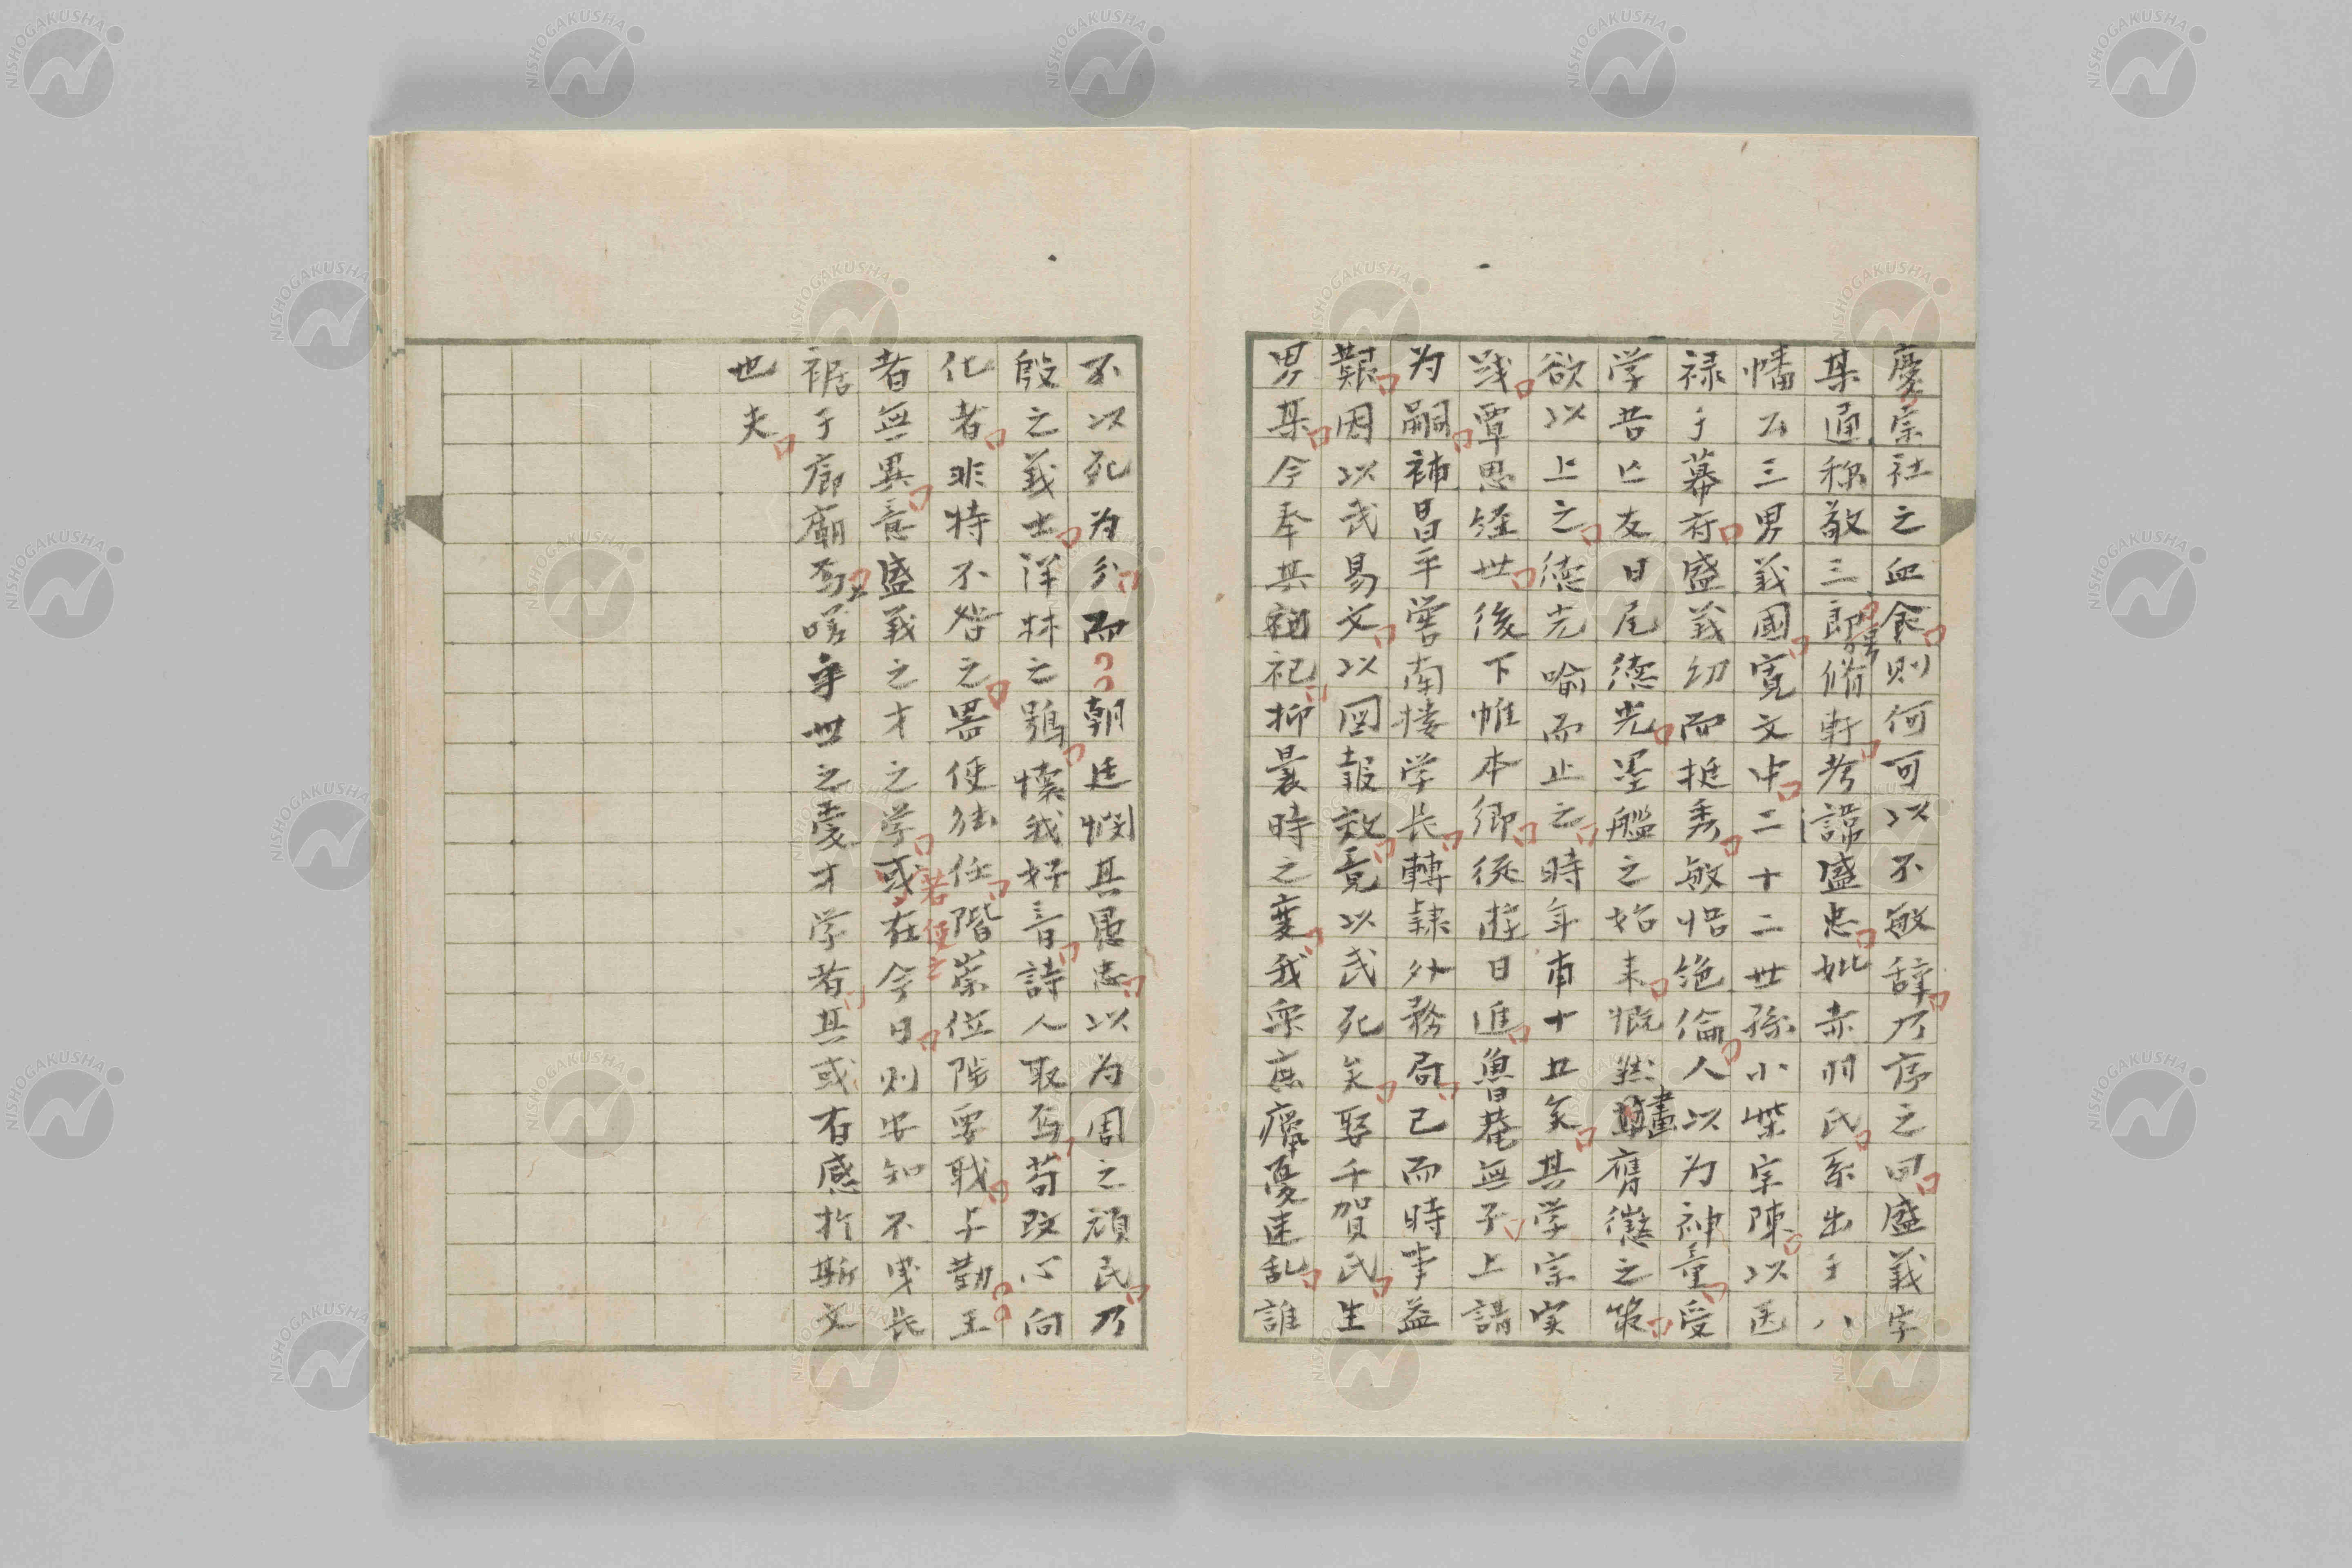 慶宗社之血食則何可以不敏辞乃序之曰盛義字
某通称敬三郎号脩軒考諱盛忠妣赤羽氏系出于八
幡公三男義國寛文中二十二世孫小柴宗陳以医
禄于幕府盛義幼而挺秀敏悟絶倫人以為神童受
学吾亡友日尾徳光墨艦之始来慨然畫膺懲之策
欲以上之徳光喻而止之時年甫十五矣其学宗実
践覃思経世後下帷本郷従遊日進魯菴無子上請
为嗣補昌平黌南楼学長轉隷外務局已而時事益
艱因以武易文以図報效竟以武死矣娶千賀氏生
男某今奉其祀抑曩時之変我衆庶瘽憂迷乱誰
不以死为分而朝廷憫其愚忠以为周之頑民乃
殷之義士洋林之鴞懐我好音詩人取焉苟改心向
化者非特不咎之畧使徒任階崇位陟要職与勤王
者無異意盛義之才之学或在今日則安知不曳長
若使之
裾于廊廟焉嗟乎世之愛才学者其或有感於斯文
也夫
NISHOGAKUSHA